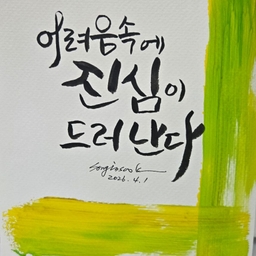 어려움속에
진심이
드러난다
2026. 4. 1